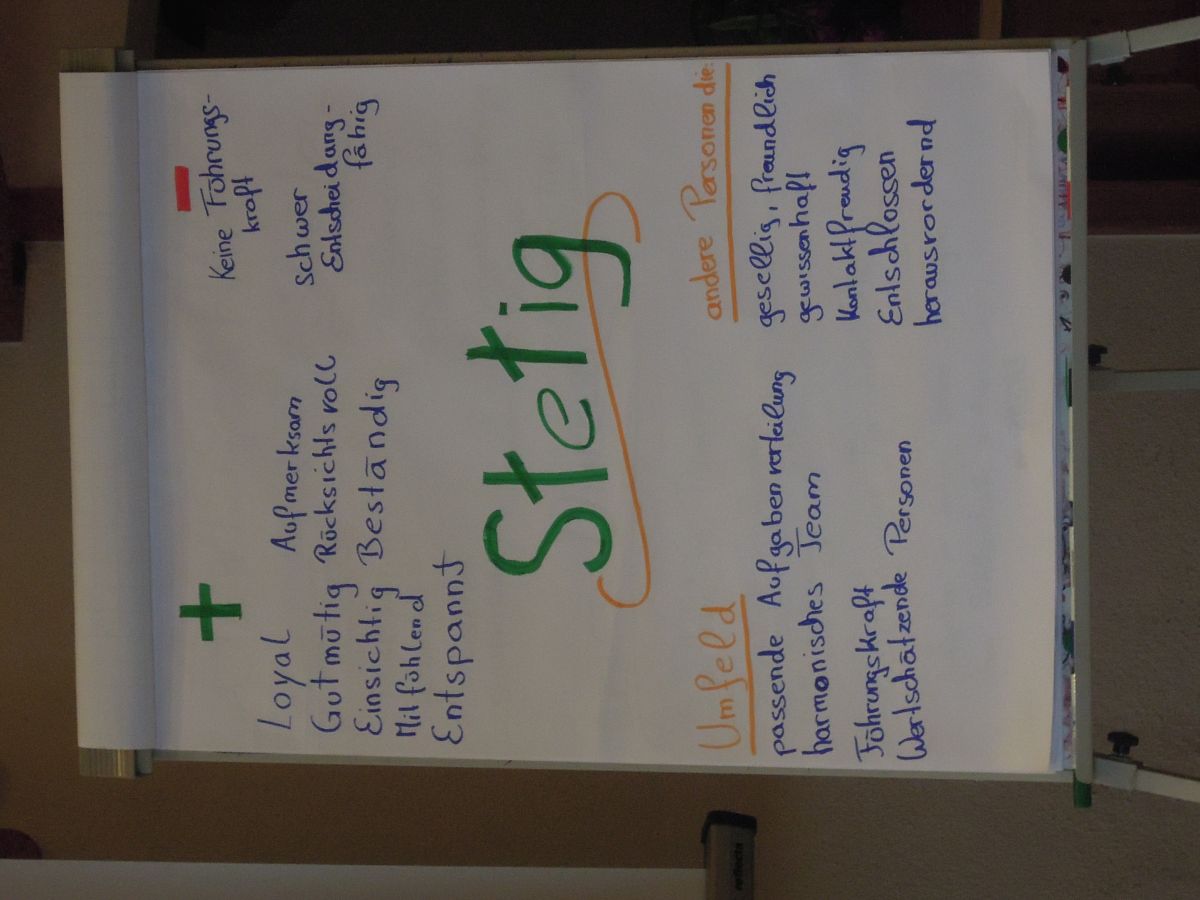 +
Loyal
Aufmerksam
Gutmütig Rücksichtsvoll
Einsichtig Beständig
Mitfühlend
Entspannt
-
Keine Führungs-
kraft
schwer
Entscheidung-
fähig
Stetig
Umfeld
passende Aufgabenverteilung
harmonisches Team
Führungskraft
Wertschätzende Personen
andere Personen die:
gesellig, freundlich
gewissenhaft
Kontaktfreudig
Entschlossen
herausvordernd
reflecta